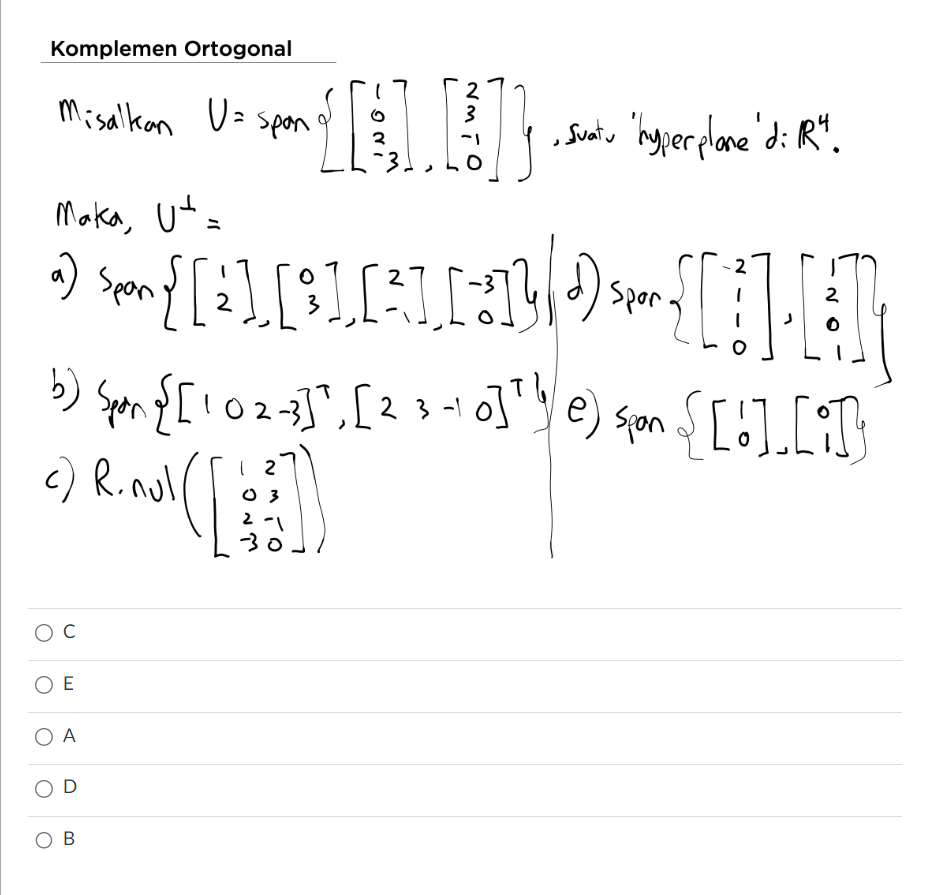 Komplemen Ortogonal
Misalkan U = span {[1 0 2 -3], [2 3 -1 0]}, suatu 'hyperplane' di ℝ⁴.
Maka, U⊥ =
a) span {[1 2], [0 3], [2 -1], [-3 0]}
b) span {[1 0 2 -3]ᵀ, [2 3 -1 0]ᵀ}
c) R. nul ([1 2
0 3
2 -1
-3 0])
d) span {[-2 1 1 0], [1 2 0 1]}
e) span {[1 0], [0 1]}
C
E
A
D
B